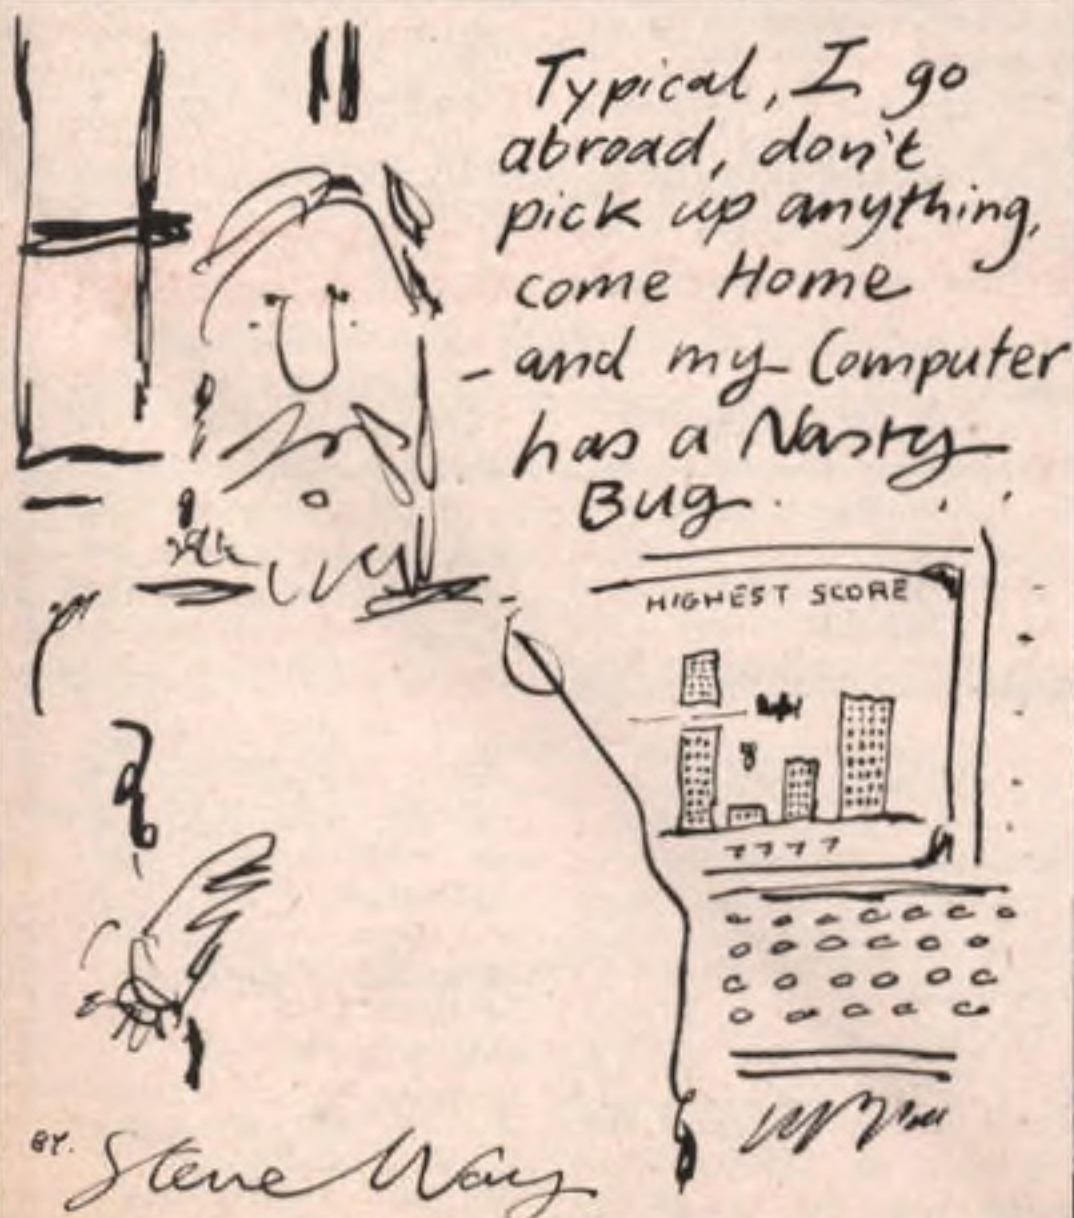 Typical, I go
abroad, don't
pick up anything,
come Home
- and my Computer
has a Nasty
Bug.
HIGHEST SCORE
7777
BY. Steve Way